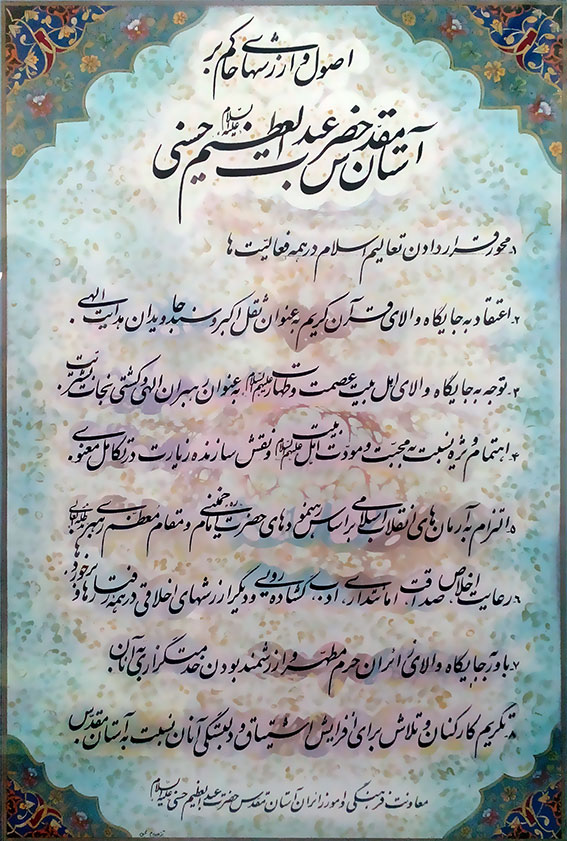 اصول و ارزشهای حاکم بر
آستان مقدس حضرت عبدالعظیم حسنی علیه السلام
۱. محور قرار دادن تعالیم اسلام در همه فعالیّت ها
۲. اعتقاد به جایگاه والای قرآن کریم به عنوان ثقل اکبر و سند جاویدان هدایت الهی.
۳. توجه به جایگاه والای اهل بیت عصمت و طهارت علیهم السلام به عنوان رهبران الهی و کشتی نجات بشریّت
۴. اهتمام ویژه نسبت به محبت و مودّت اهل بیت علیهم السلام و نقش سازنده زیارت در تکامل معنوی
۵. التزام به آرمان های انقلاب اسلامی بر اساس رهنمودهای حضرت امام خمینی و مقام معظم رهبری
۶. رعایت اخلاص، صداقت، امانتداری، ادب، گشاده رویی و دیگر ارزشهای اخلاقی در همه رفتارها و برخوردها
۷. باور به جایگاه والای زائران حرم مطهر و ارزشمند بودن خدمتگزاری به آنان.
۸. تکریم کارکنان و تلاش برای افزایش اشتیاق و دلبستگی آنان نسبت به آستان مقدس
معاونت فرهنگی و امور زائران آستان مقدس حضرت عبدالعظیم حسنی علیه السلام